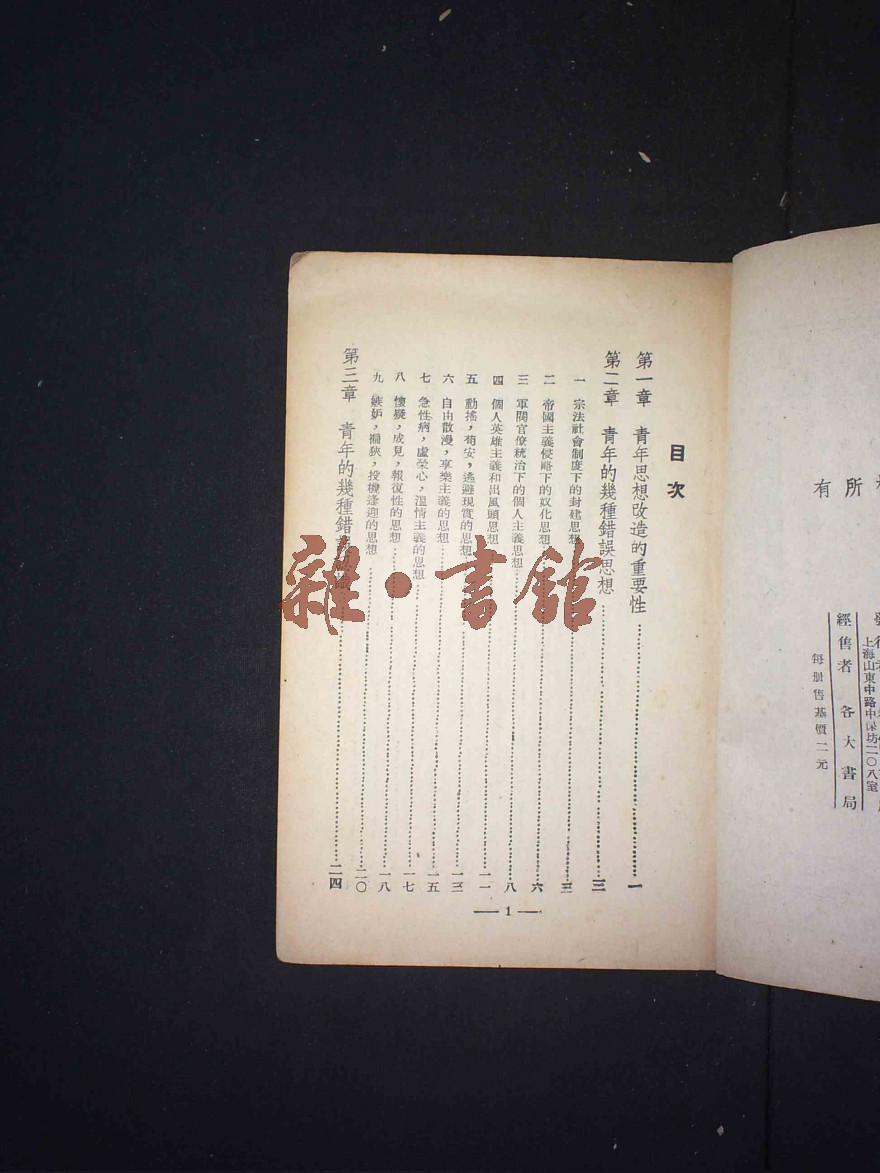 目次
第一章 青年思想改造的重要性……一
第二章 青年的幾種錯誤思想……三
一 宗法社會制度下的封建思想……三
二 帝國主義侵略下的奴化思想……六
三 軍閥官僚統治下的個人主義思想……八
四 個人英雄主義和出風頭思想……一一
五 動搖，苟安，逃避現實的思想……一三
六 自由散漫，享樂主義的思想……一五
七 急性病，虛榮心，溫情主義的思想……一七
八 懷疑，成見，報復性的思想……一八
九 嫉妒，褊狹，投機逢迎的思想……二〇
第三章 青年的幾種錯……二四
— 1 —
雜·書館
所有
上海山東中路中保坊二〇八室
經售者 各大書局
每册售基價二元